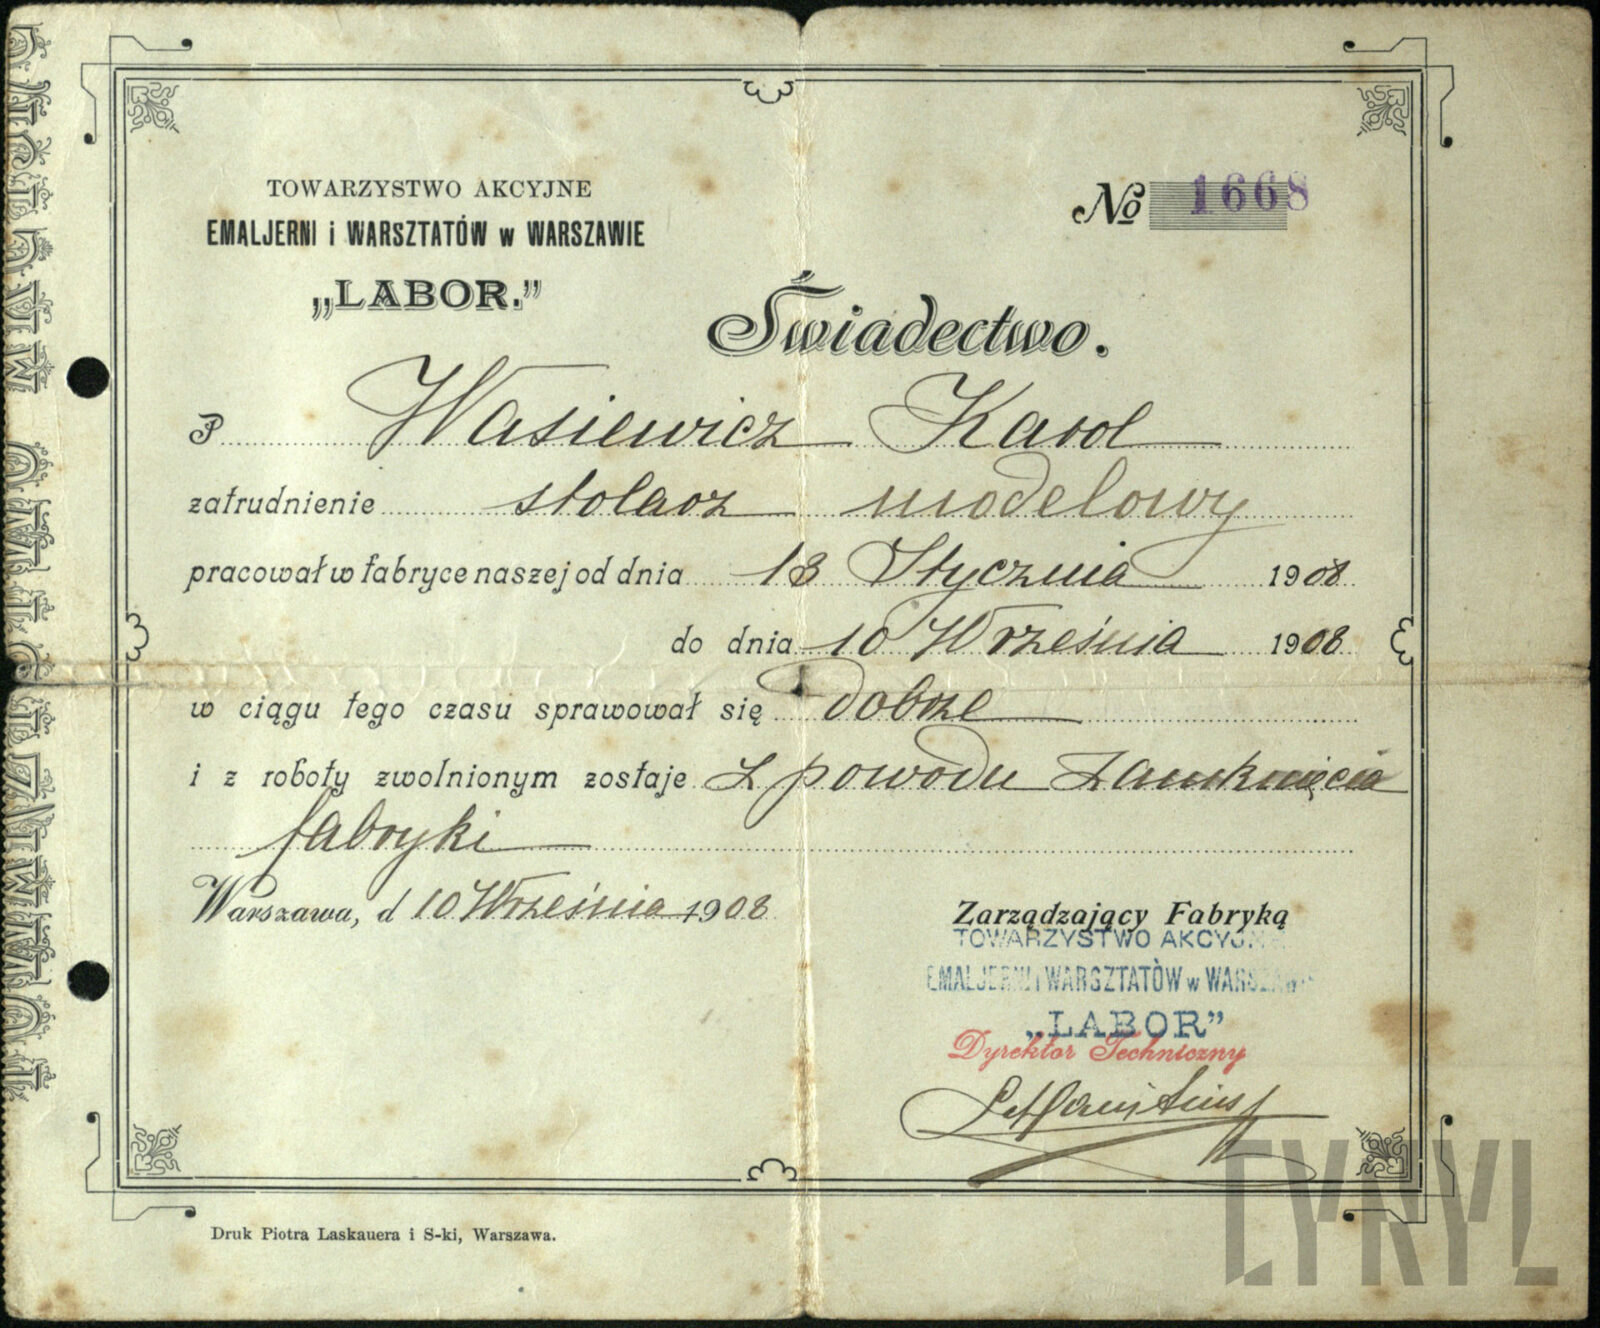 TOWARZYSTWO AKCYJNE
EMALJERNI i WARSZTATÓW w WARSZAWIE
„LABOR.”
No 1668
Świadectwo.
P. Wasiewicz Karol
zatrudnienie stolarz modelowy
pracował w fabryce naszej od dnia 13 Stycznia 1908
do dnia 10 Września 1908
w ciągu tego czasu sprawował się dobrze
i z roboty zwolnionym zostaje z powodu zamknięcia
fabryki
Warszawa, d 10 Września 1908
Zarządzający Fabryką
TOWARZYSTWO AKCYJNE
EMALJERNI i WARSZTATÓW w WARSZAWIE
„LABOR”
Dyrektor Techniczny
Druk Piotra Laskauera i S-ki, Warszawa.
CYRYL